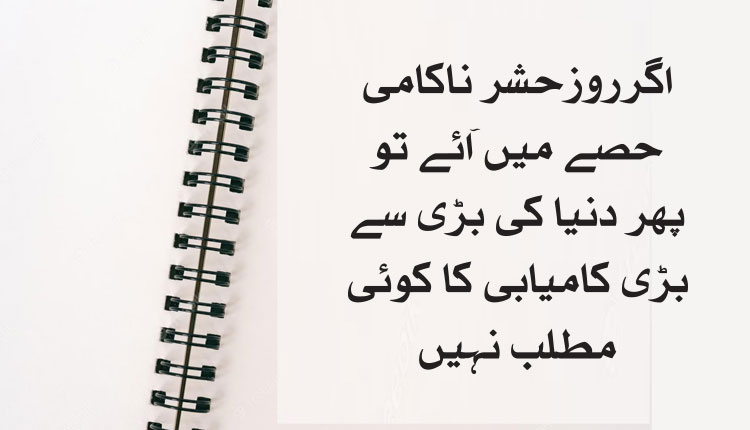 اگرروزحشر ناکامی
حصے میں آئے تو
پھر دنیا کی بڑی سے
بڑی کامیابی کا کوئی
مطلب نہیں